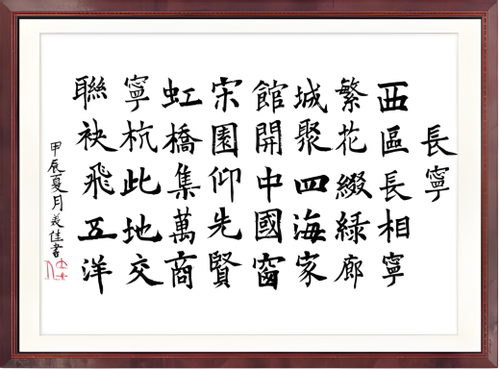 長寧
西區長相寧
繁花綴綠廊
城聚四海家
館開中國窗
宋園仰先賢
虹橋集萬商
寧杭此地交
聯袂飛五洋
甲辰夏月美佳書